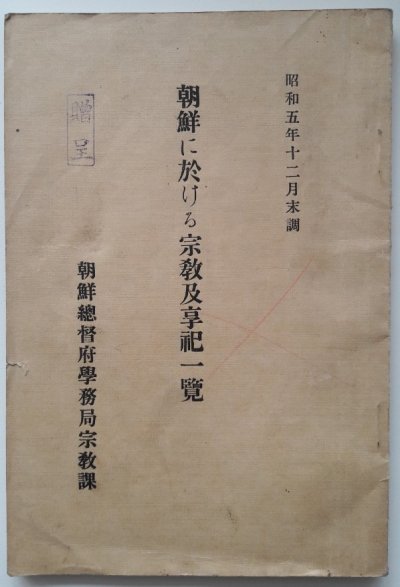 昭和五年十二月末調
朝鮮に於ける宗教及享祀一覽
贈呈
朝鮮總督府學務局宗教課